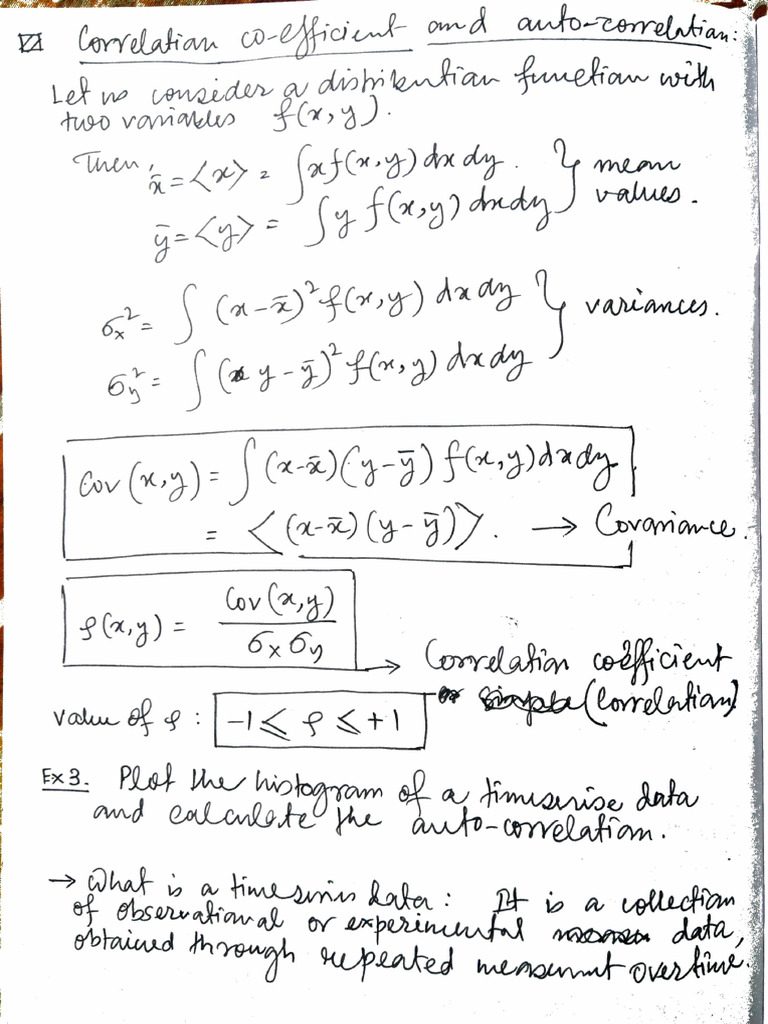 VI Correlation co-efficient and auto-correlation:
Let us consider a distribution function with
two variables f(x,y).
Then, x̄ = <x> = ∫x f(x,y) dx dy. } mean values.
ȳ = <y> = ∫y f(x,y) dx dy
σx² = ∫ (x-x̄)² f(x,y) dx dy } variances.
σy² = ∫ (y-ȳ)² f(x,y) dx dy
Cov(x,y) = ∫ (x-x̄)(y-ȳ) f(x,y) dx dy
= <(x-x̄)(y-ȳ)>. → Covariance.
ρ(x,y) = Cov(x,y) / σx σy
→ Correlation coefficient
(Correlation)
value of ρ : -1 ≤ ρ ≤ +1
Ex 3. Plot the histogram of a timeserise data
and calculate the auto-correlation.
→ What is a timeseries data : It is a collection
of observational or experimental data,
obtained through repeated measurement over time.